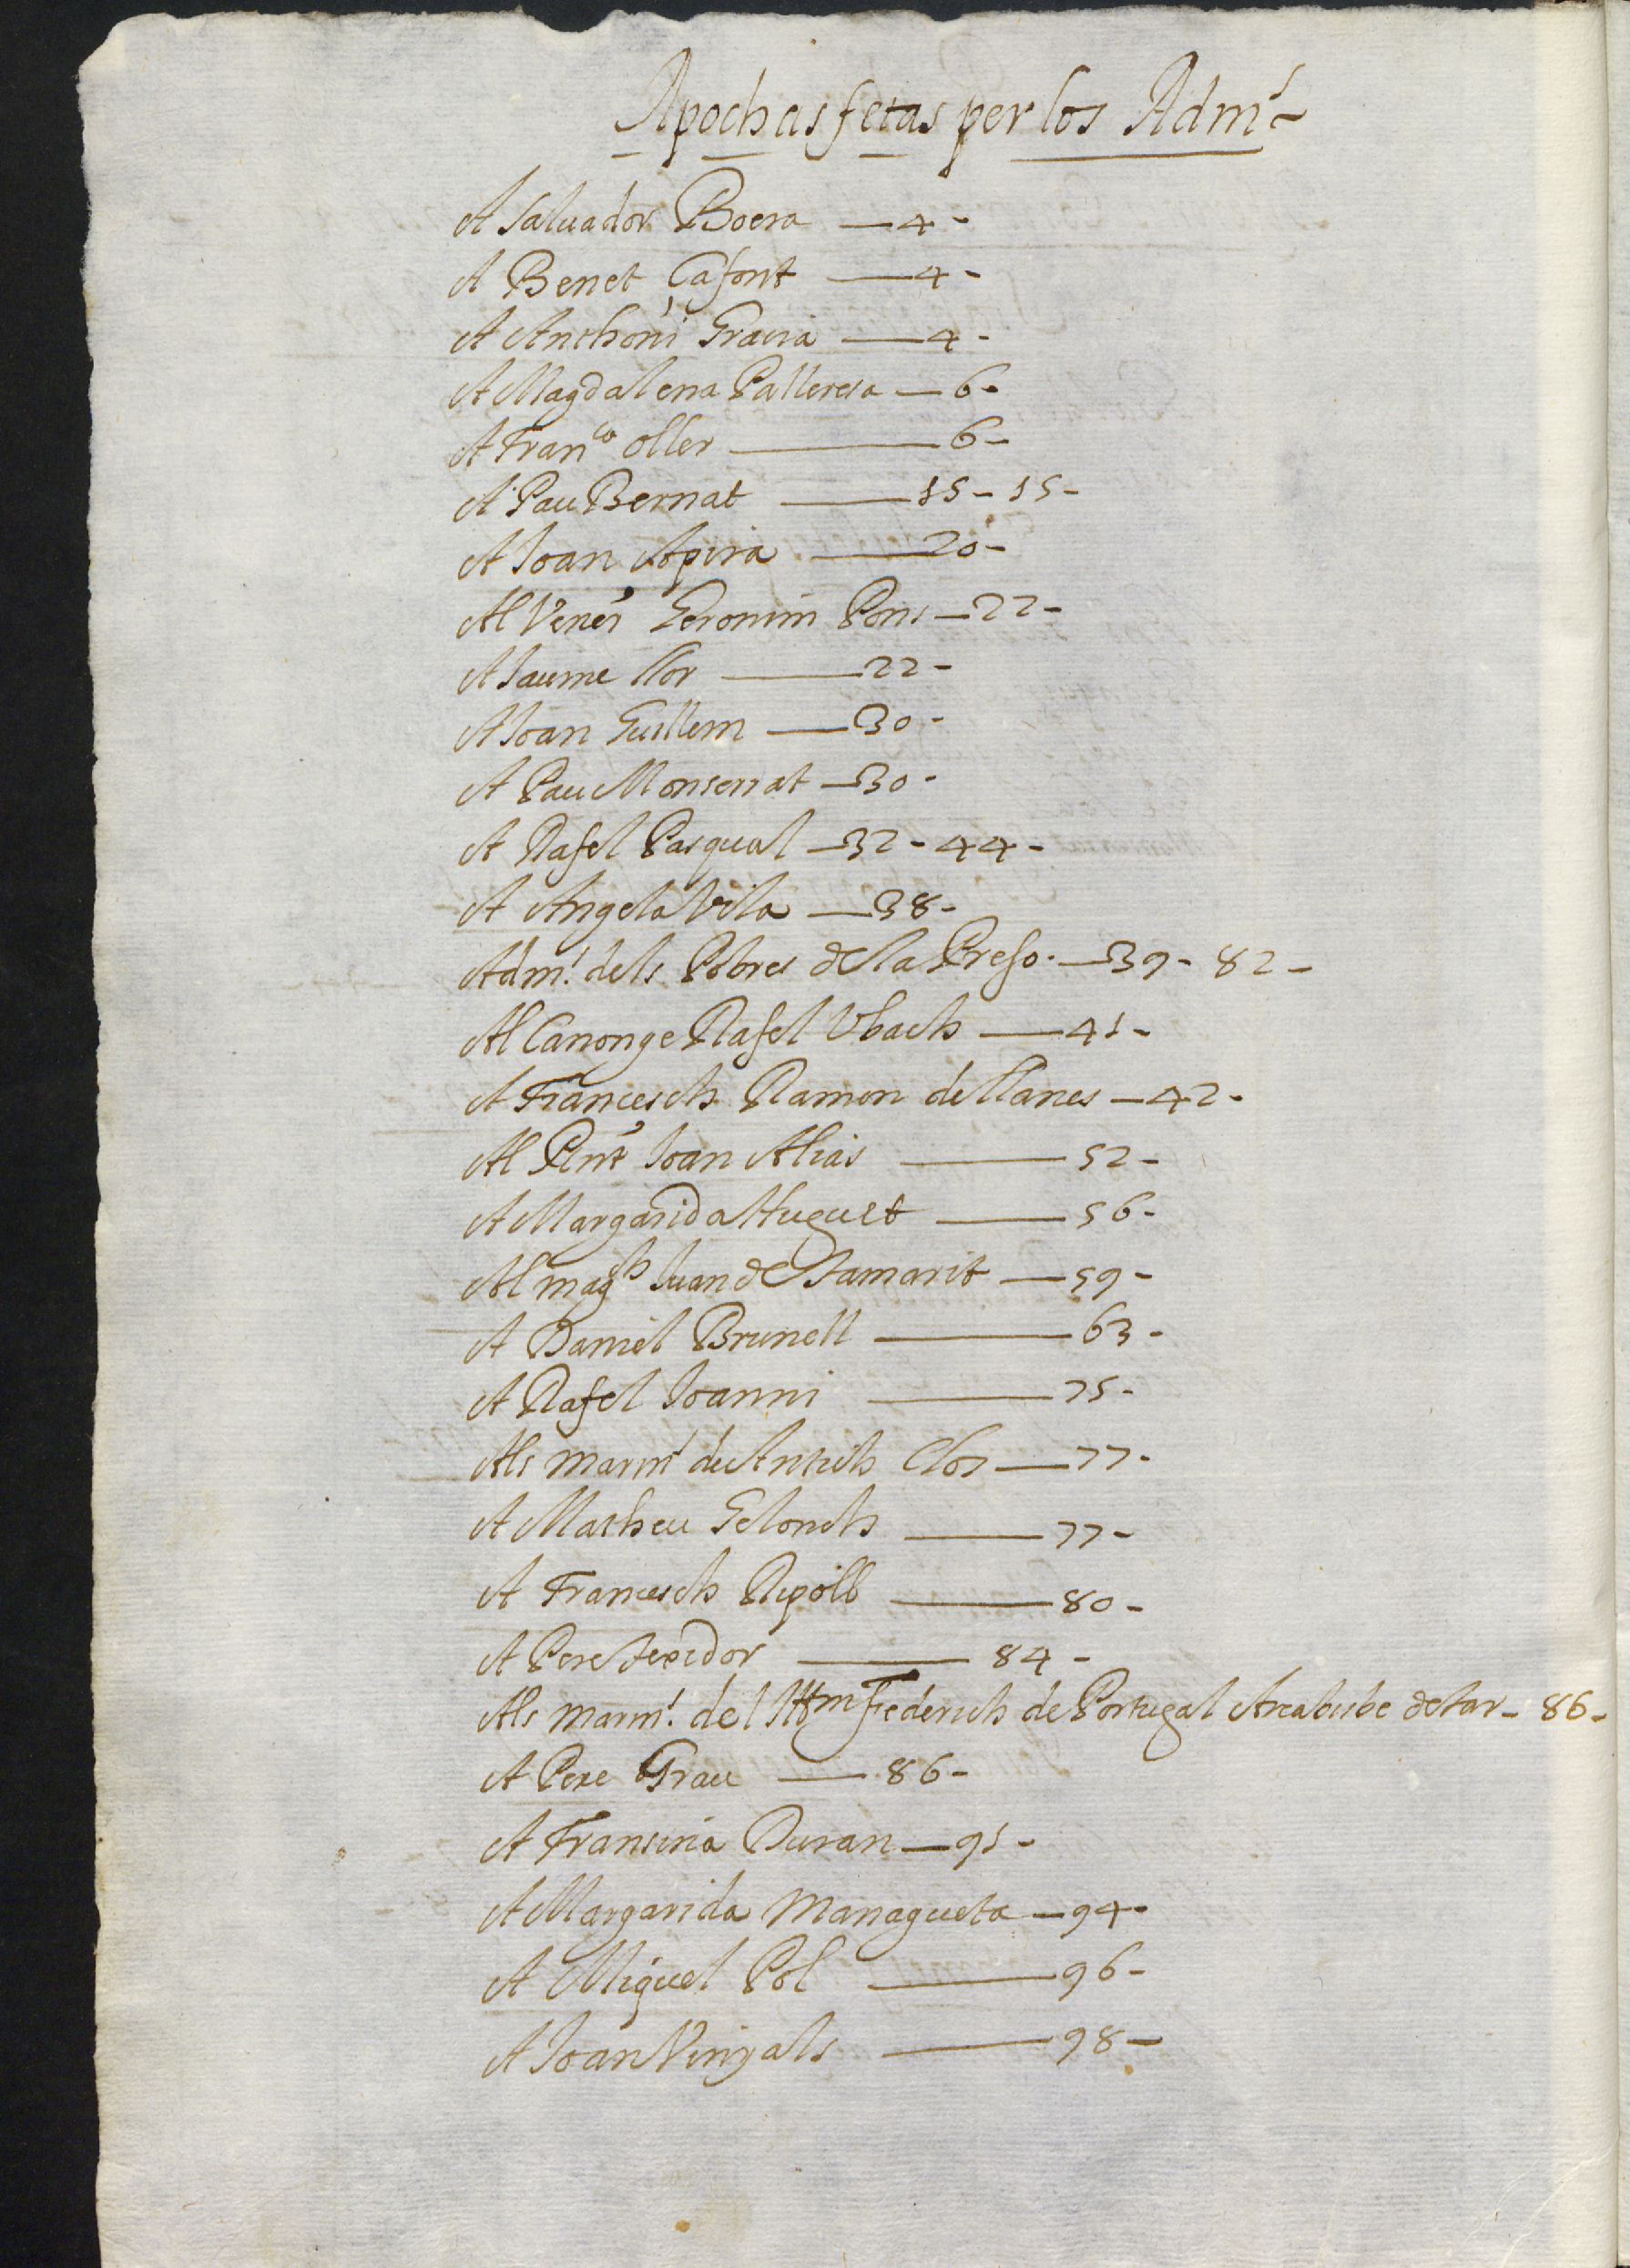 Apochas fetas per los Adm.rs
A Saluador Boera — 4 -
A Benet Çafont — 4 -
A Anthoni Gracia — 4 -
A Magdalena Palleresa — 6 -
A Fran.co Oller — 6 -
A Pau Bernat — 15 - 15 -
A Joan — 20 -
Al Vener Geronim Pons — 22 -
A Jaume llor — 22 -
A Joan Guillem — 30 -
A Pau Monserrat — 30 -
A Rafel Pasqual — 32 - 44 -
A Angela Vila — 38 -
Adm.rs dels Pobres de la Preso. — 39 - 82 -
Al Canonge Rafel Vbach — 41 -
A Francesch Ramon dellanes — 42 -
Al Rnt Joan Alias — 52 -
A Margarida Huguet — 56 -
Al mag.ch Juan de Tamarit — 59 -
A Daniel Brunell — 63 -
A Rafel Joanni — 75 -
Als marm.rs de Antich Clos — 77 -
A Matheu Gelonch — 77 -
A Francesch Ripoll — 80 -
A Pere Texidor — 84 -
Als marm.rs del Illm Federich de Portugal Arcabisbe de Tar - 86 -
A Pere Grau — 86 -
A Fransina Duran — 91 -
A Margarida Managueta — 94 -
A Miguel Pol — 96 -
A Joan Vinyals — 98 —